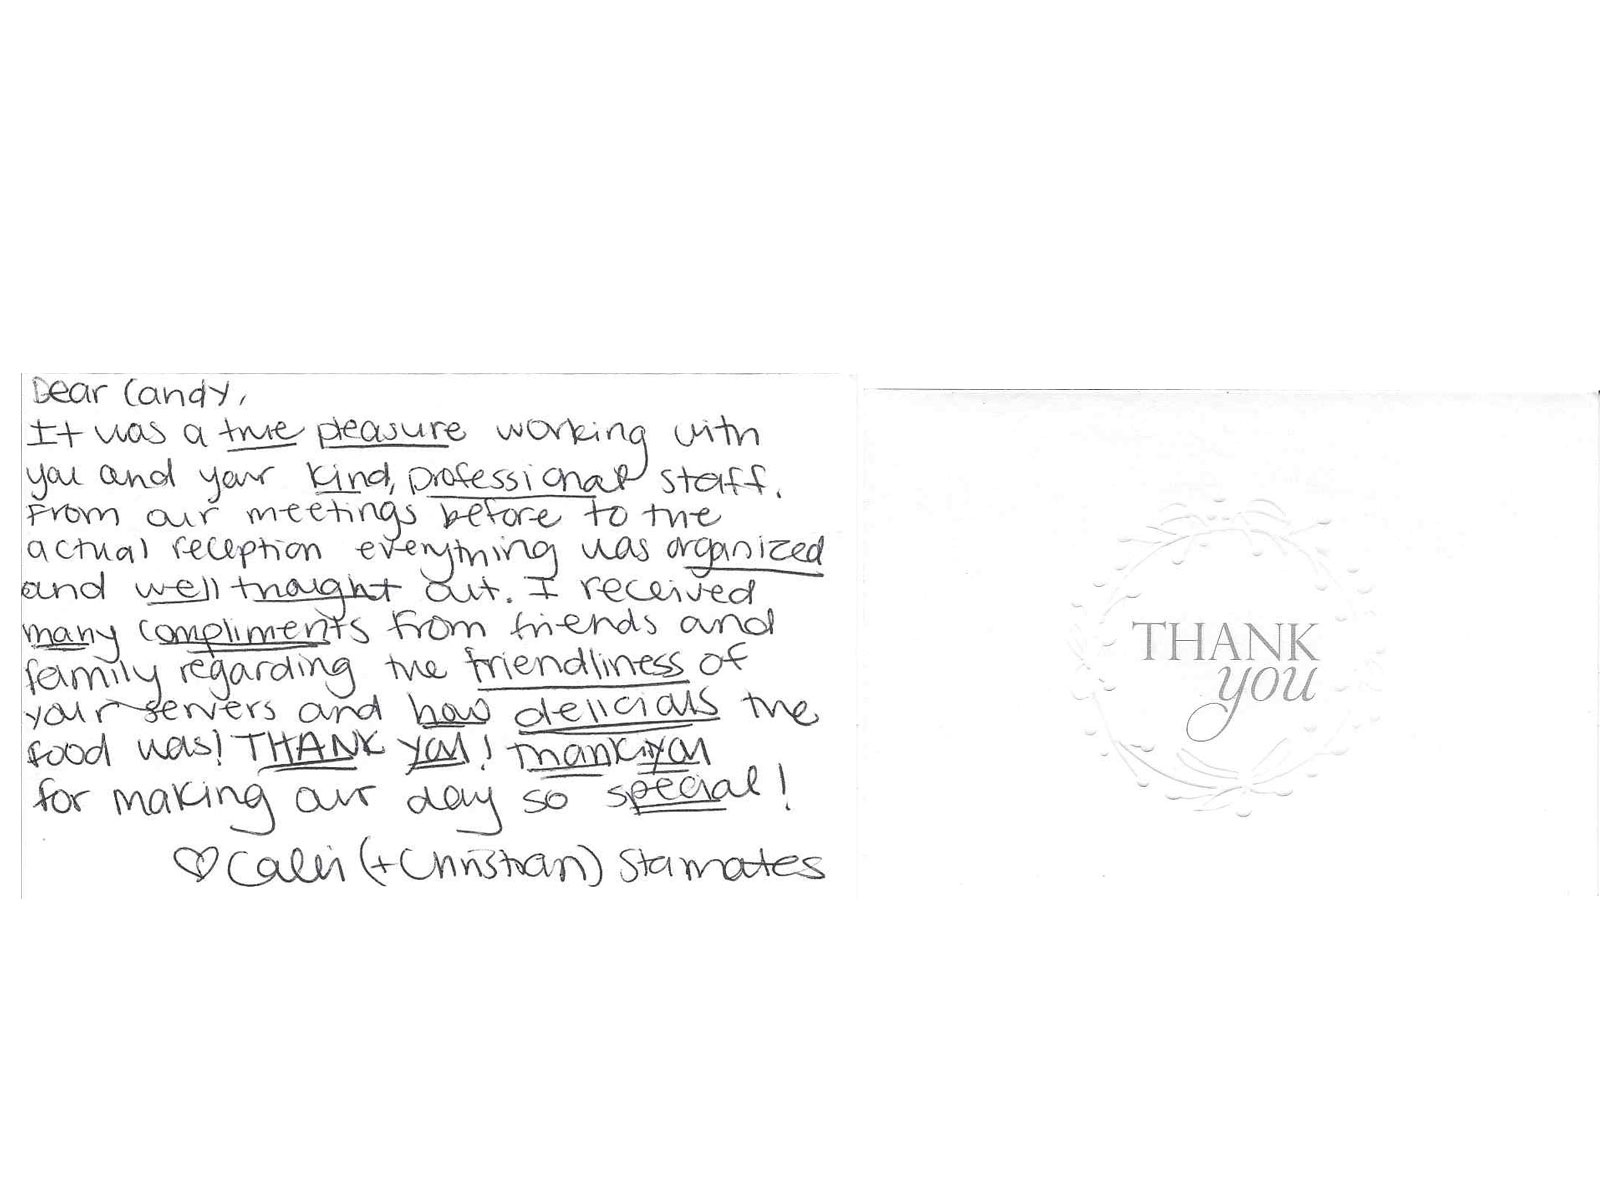 Dear Candy,
It was a true pleasure working with
you and your kind, professional staff.
From our meetings before to the
actual reception everything was organized
and well thought out. I received
many compliments from friends and
family regarding the friendliness of
your servers and how delicious the
food was! THANK YOU! Thank you
for making our day so special!
♡ (+Christian) Stamates
THANK
you